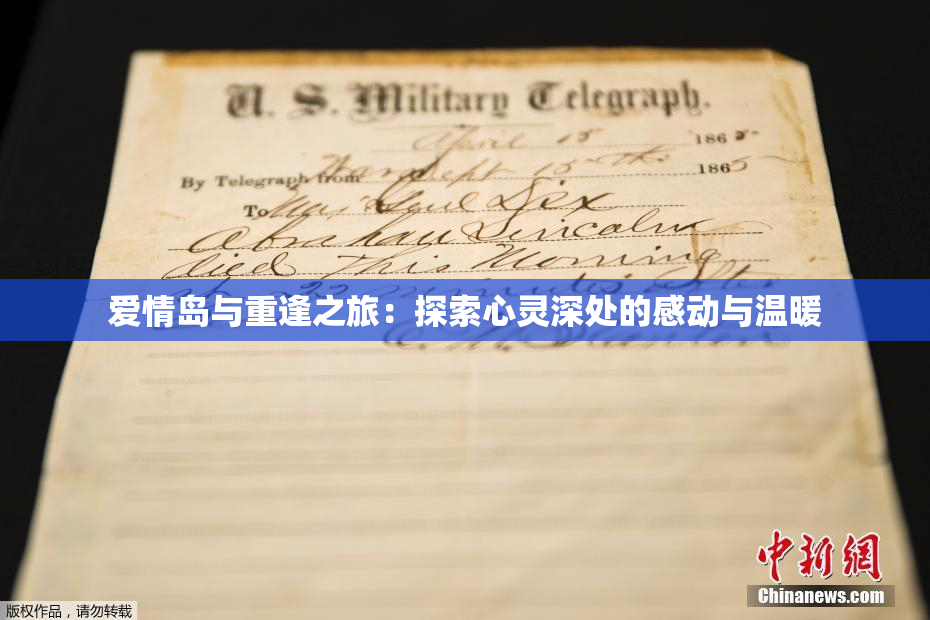 U. S. Military Telegraph.
April 15 1865
By Telegraph from War Dept 15th 1865
To Maj Genl Dix
Abraham Lincoln
died This Morning
at 22 minutes after
爱情岛与重逢之旅：探索心灵深处的感动与温暖
E. M. Stanton
中新網
Chinanews.com
版权作品，请勿转载